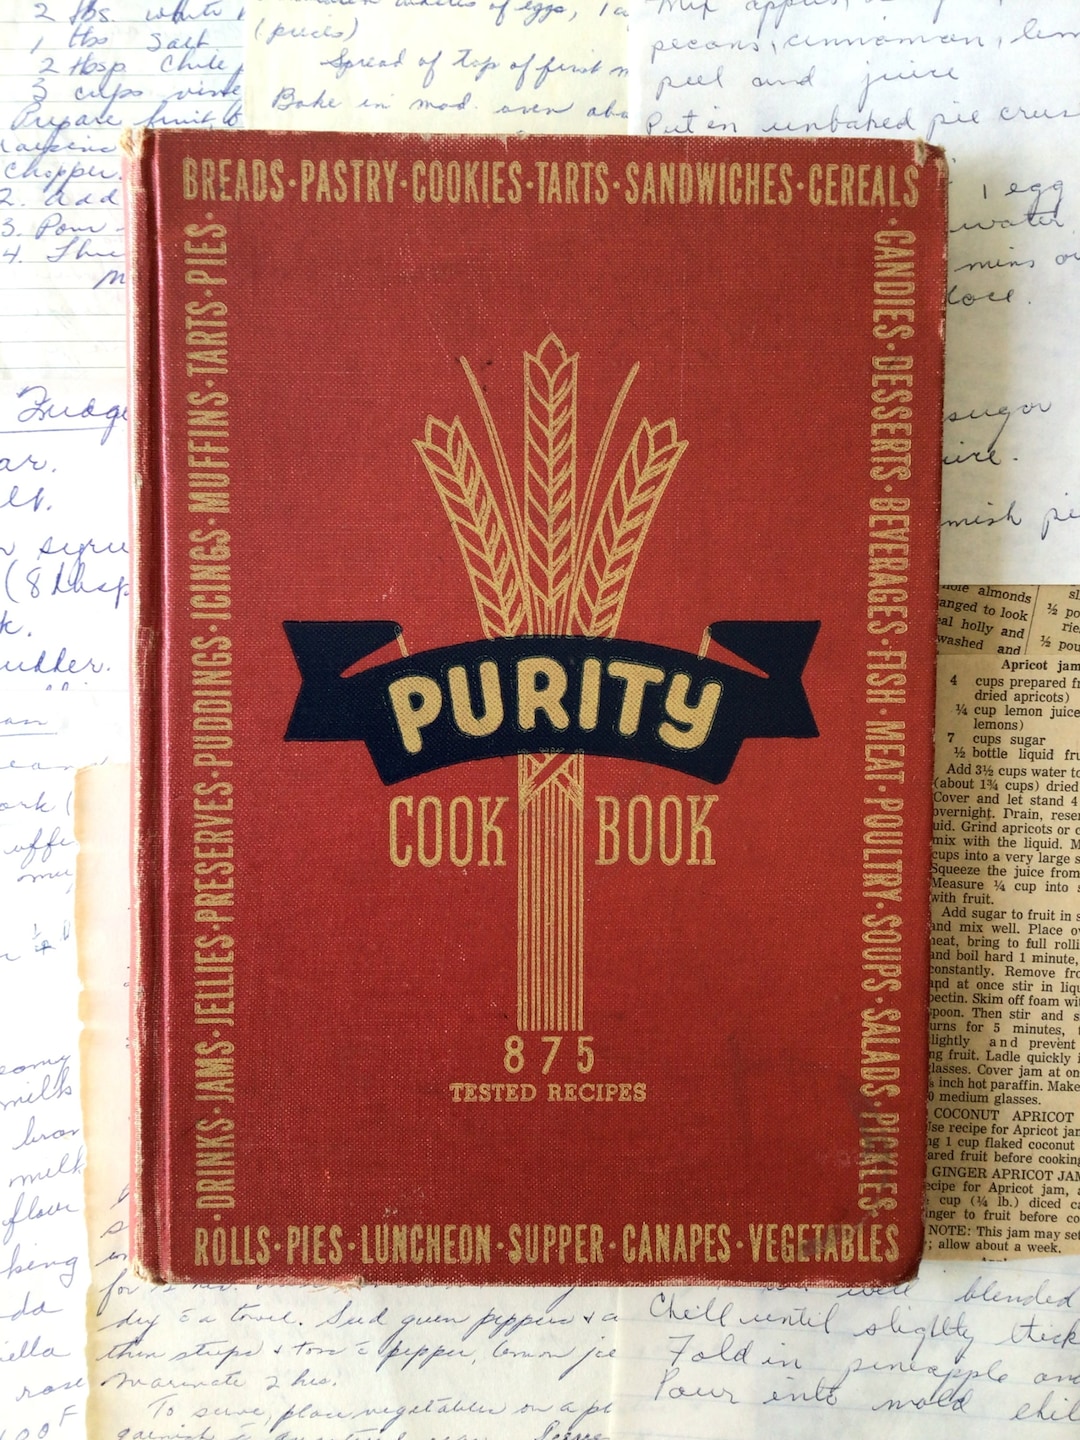 2 lbs. white
1 tbs salt
2 tbsp Chile
3 cups vine
Prepare fruit,
chopper.
2. add
3. Pour
4.
Fudge
ar.
(8 tbsp
k.
udder.
milk
bron
milk
flour
king
da
illa
whites of eggs, 1
(pieces)
Spread of top of first m
Bake in mod. oven abo
Mix apples,
pecans, cinnamon, lem
peel and juice
Put in unbaked pie crus
1 egg
water
mins
sugar
BREADS·PASTRY·COOKIES·TARTS·SANDWICHES·CEREALS
·CANDIES·DESSERTS·BEVERAGES·FISH·MEAT·POULTRY·SOUPS·SALADS·PICKLES·
·DRINKS·JAMS·JELLIES·PRESERVES·PUDDINGS·ICINGS·MUFFINS·TARTS·PIES·
PURITY
COOK BOOK
875
TESTED RECIPES
ROLLS·PIES·LUNCHEON·SUPPER·CANAPES·VEGETABLES
ole almonds
anged to look
al holly and
washed and
½ po
rie
½ pou
Apricot jam
4 cups prepared fr
dried apricots)
¼ cup lemon juice
lemons)
7 cups sugar
½ bottle liquid fru
Add 3½ cups water to
(about 1¾ cups) dried
Cover and let stand 4
overnight. Drain, reser
uid. Grind apricots or c
mix with the liquid. M
cups into a very large s
Squeeze the juice from
Measure ¼ cup into s
with fruit.
Add sugar to fruit in s
and mix well. Place ov
heat, bring to full rolli
and boil hard 1 minute,
constantly. Remove fro
and at once stir in liqu
pectin. Skim off foam wi
spoon. Then stir and s
urns for 5 minutes,
lightly and prevent
ng fruit. Ladle quickly i
glasses. Cover jam at on
inch hot paraffin. Make
0 medium glasses.
COCONUT APRICOT
Use recipe for Apricot jam
ng 1 cup flaked coconut
ared fruit before cooking
GINGER APRICOT JAM
ecipe for Apricot jam,
cup (¼ lb.) diced ca
inger to fruit before co
NOTE: This jam may set
; allow about a week.
dry c̄ a towel. Seed green peppers + a
then strips + toss c̄ pepper, lemon jce
marinate 2 hrs.
To serve, place vegetables on a pl
well blended
Chill until slightly thick
Fold in pineapple and
Pour into mold chil